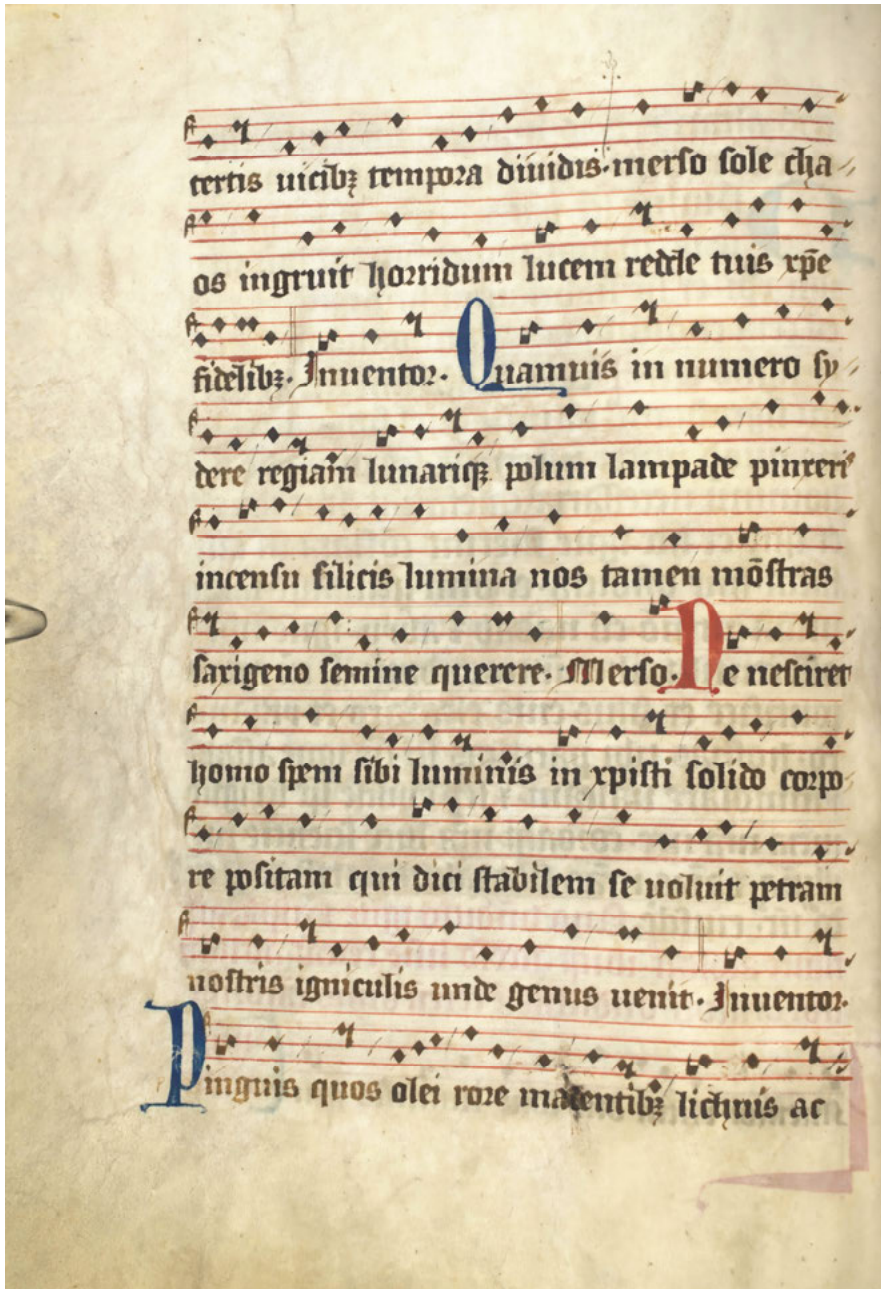 certis uicibꝫ tempora diuidis·merso sole cha
os ingruit horridum lucem redde tuis xp̄e
fidelibꝫ· Inuentor· Quamuis in numero sy
dere regiam̄ lunariqꝫ polum lampade pinxeri
incensu silicis lumina nos tamen mōstras
saxigeno semine querere· Merso· Ne nesciret
homo spem sibi luminis in xpisti solido corpo
re positam qui dici stabilem se uoluit petram
nostris igniculis unde genus uenit· Inuentor·
Pinguis quos olei rore madentibꝫ lichnis ac